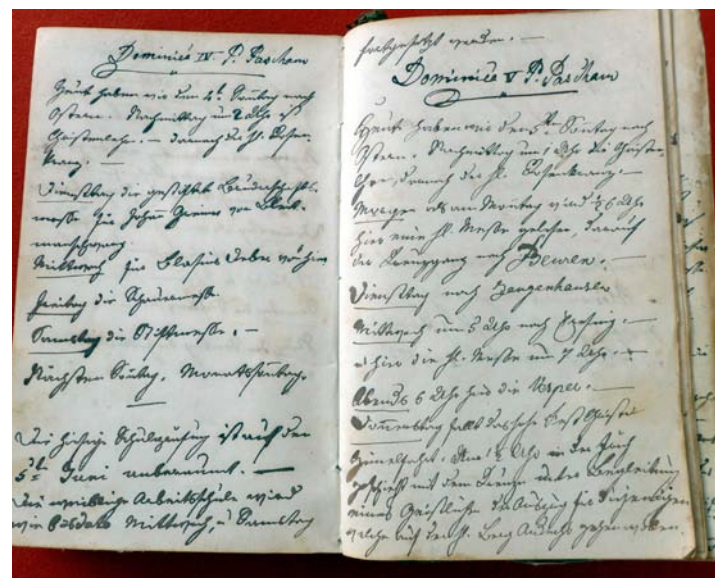 Dominica IV. P. Pascham
Heute haben wir den 4t. Sontag nach
Ostern. Nachmittag um 2 Uhr ist
Christenlehre. – darnach der hl. Rosen-
kranz. –
Dienstag die gestiftete Bruderschafts-
messe für Johann von
Mittwoch für Blasius Weber von hier
Freitag die Schauermesse
Samstag die Stiftmesse. –
Nächsten Sontag, Monatssontag.
Die hiesige Schulprüfung ist auf den
5t. Juni anberaumt. –
Die weibliche Arbeitsschule wird
wie Mittwoch, u Samstag
fortgesetzt werden. –
Dominica V P. Pascham
Heute haben wir den 5t. Sontag nach
Ostern. Nachmittag um 1 Uhr die Christen-
lehre, darnach der hl. Rosenkranz. –
Morgen als am Montag wird ½6 Uhr
hier eine hl. Messe gelesen, darauf
der Kreuzgang nach Beuren. –
Dienstag nach Zangenhausen
Mittwoch um 5 Uhr nach –
u hier die hl. Messe um 7 Uhr. –
Abends 6 Uhr hier die Vesper. –
Donnerstag fällt das hohe Fest Christi
Himelfahrt. Um 1½ Uhr in der Früh
geschieht mit dem Kreuze unter Begleitung
eines Geistlichen der Auszug für diejenigen
welche auf den hl. Berg Andechs gehen wollen.